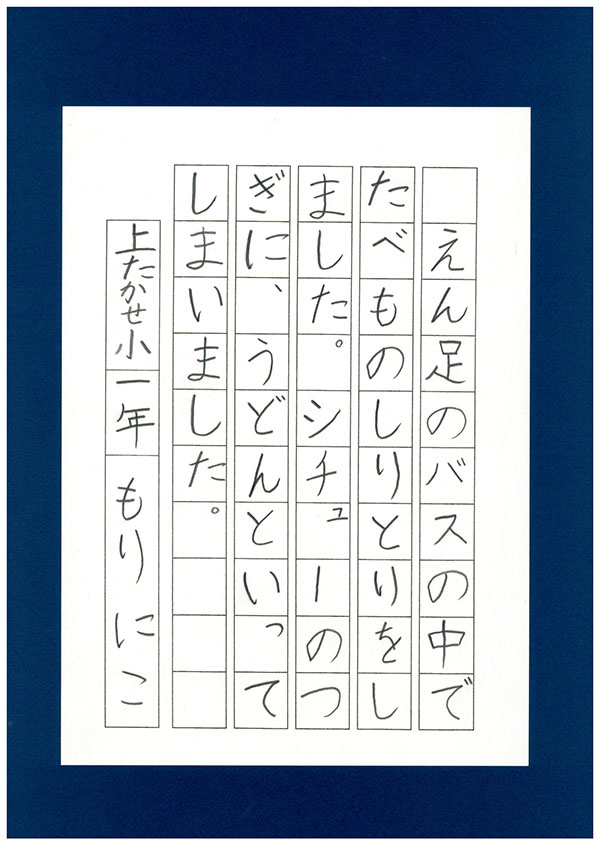 えん足のバスの中で
たべものしりとりをし
ました。シチューのつ
ぎに、うどんといって
しまいました。
上たかせ小一年もりにこ